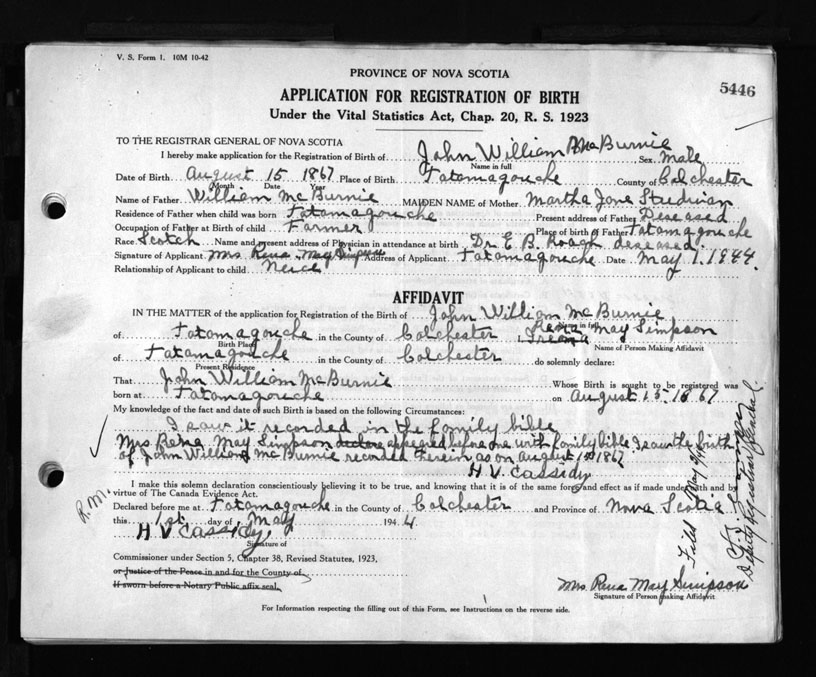 V. S. Form 1. 10M 10-42
5446
PROVINCE OF NOVA SCOTIA
APPLICATION FOR REGISTRATION OF BIRTH
Under the Vital Statistics Act, Chap. 20, R. S. 1923
TO THE REGISTRAR GENERAL OF NOVA SCOTIA
I hereby make application for the Registration of Birth of John William McBurnie Sex male
Name in full
Date of Birth August 15 1867 Place of Birth Tatamagouche County of Colchester
Month Date Year
Name of Father William McBurnie MAIDEN NAME of Mother Martha Jane
Residence of Father when child was born Tatamagouche Present address of Father Deseased
Occupation of Father at Birth of child Farmer Place of birth of Father Tatamagouche
Race Scotch Name and present address of Physician in attendance at birth Dr E. B. Roach deseased.
Signature of Applicant Mrs Rena May Simpson Address of Applicant Tatamagouche Date May 1. 1944.
Relationship of Applicant to child Neice
AFFIDAVIT
IN THE MATTER of the application for Registration of the Birth of John William McBurnie
Name in full
of Tatamagouche in the County of Colchester Rena May Simpson
Birth Place Name of Person Making Affidavit
of Tatamagouche in the County of Colchester do solemnly declare:
Present Residence
That John William McBurnie Whose Birth is sought to be registered was
born at Tatamagouche on August 15. 1867
My knowledge of the fact and date of such Birth is based on the following Circumstances:
I saw it recorded in the family bible
Mrs Rena May Simpson declare appeared before me with family bible I saw the birth
of John William McBurnie recorded as on August 15 1867
H V. Cassidy
I make this solemn declaration conscientiously believing it to be true, and knowing that it is of the same force and effect as if made under oath and by
virtue of The Canada Evidence Act.
R.M.
Declared before me at Tatamagouche in the County of Colchester and Province of Nova Scotia
this 1st day of May 1944
H V Cassidy
Signature of
Commissioner under Section 5, Chapter 38, Revised Statutes, 1923,
or Justice of the Peace in and for the County of
If sworn before a Notary Public affix seal.
Mrs. Rena May Simpson
Signature of Person making Affidavit
For Information respecting the filling out of this Form, see Instructions on the reverse side.
Filed May
Deputy Registrar General.